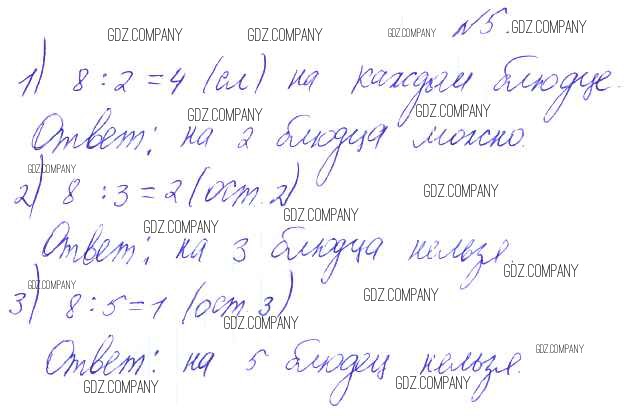 №5.
1) 8 : 2 = 4 (сл) на каждом блюдце.
Ответ: на 2 блюдца можно.
2) 8 : 3 = 2 (ост. 2)
Ответ: на 3 блюдца нельзя.
3) 8 : 5 = 1 (ост. 3)
Ответ: на 5 блюдец нельзя.
GDZ.COMPANY GDZ.COMPANY GDZ.COMPANY GDZ.COMPANY
GDZ.COMPANY GDZ.COMPANY
GDZ.COMPANY GDZ.COMPANY
GDZ.COMPANY GDZ.COMPANY
GDZ.COMPANY
GDZ.COMPANY GDZ.COMPANY
GDZ.COMPANY
GDZ.COMPANY
GDZ.COMPANY GDZ.COMPANY